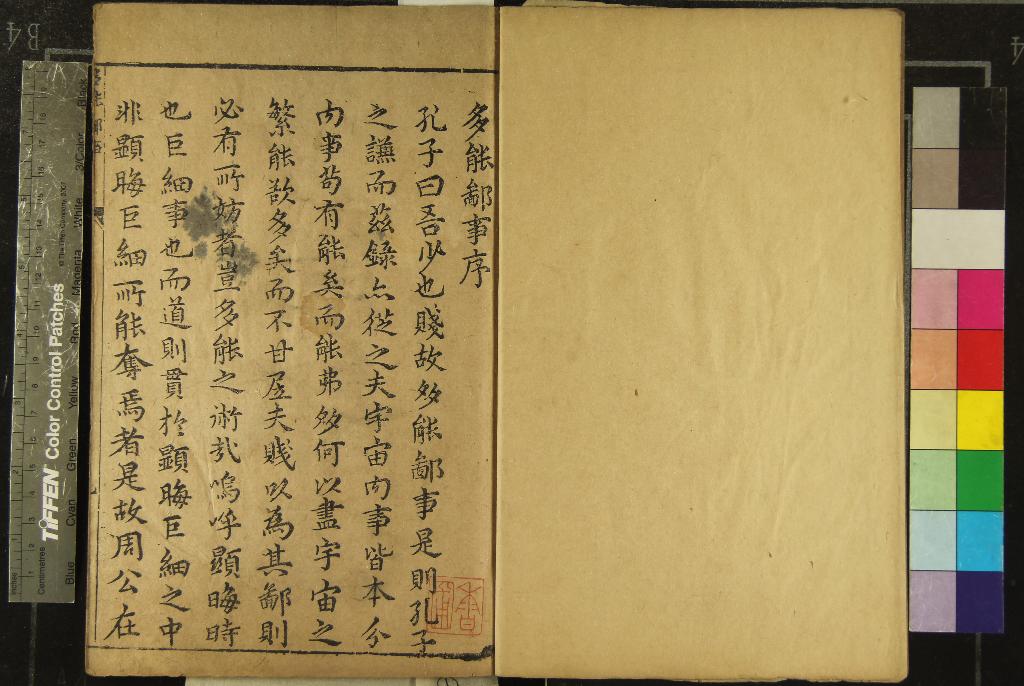 多能鄙事序
孔子曰吾少也賤故多能鄙事是則孔子
之謙而茲錄亦從之夫宇宙内事皆本分
内事苟有能矣而能弗多何以盡宇宙之
繁能欲多矣而不甘居夫賤以為其鄙則
必有所妨者豈多能之術哉嗚呼顯晦時
也巨細事也而道則貫於顯晦巨細之中
非顯晦巨細所能奪焉者是故周公在
TIFFEN Color Control Patches
© The Tiffen Company, 2007
Centimetres
Inches
Blue
Cyan
Green
Yellow
Red
Magenta
White
3/Color
Black
B4